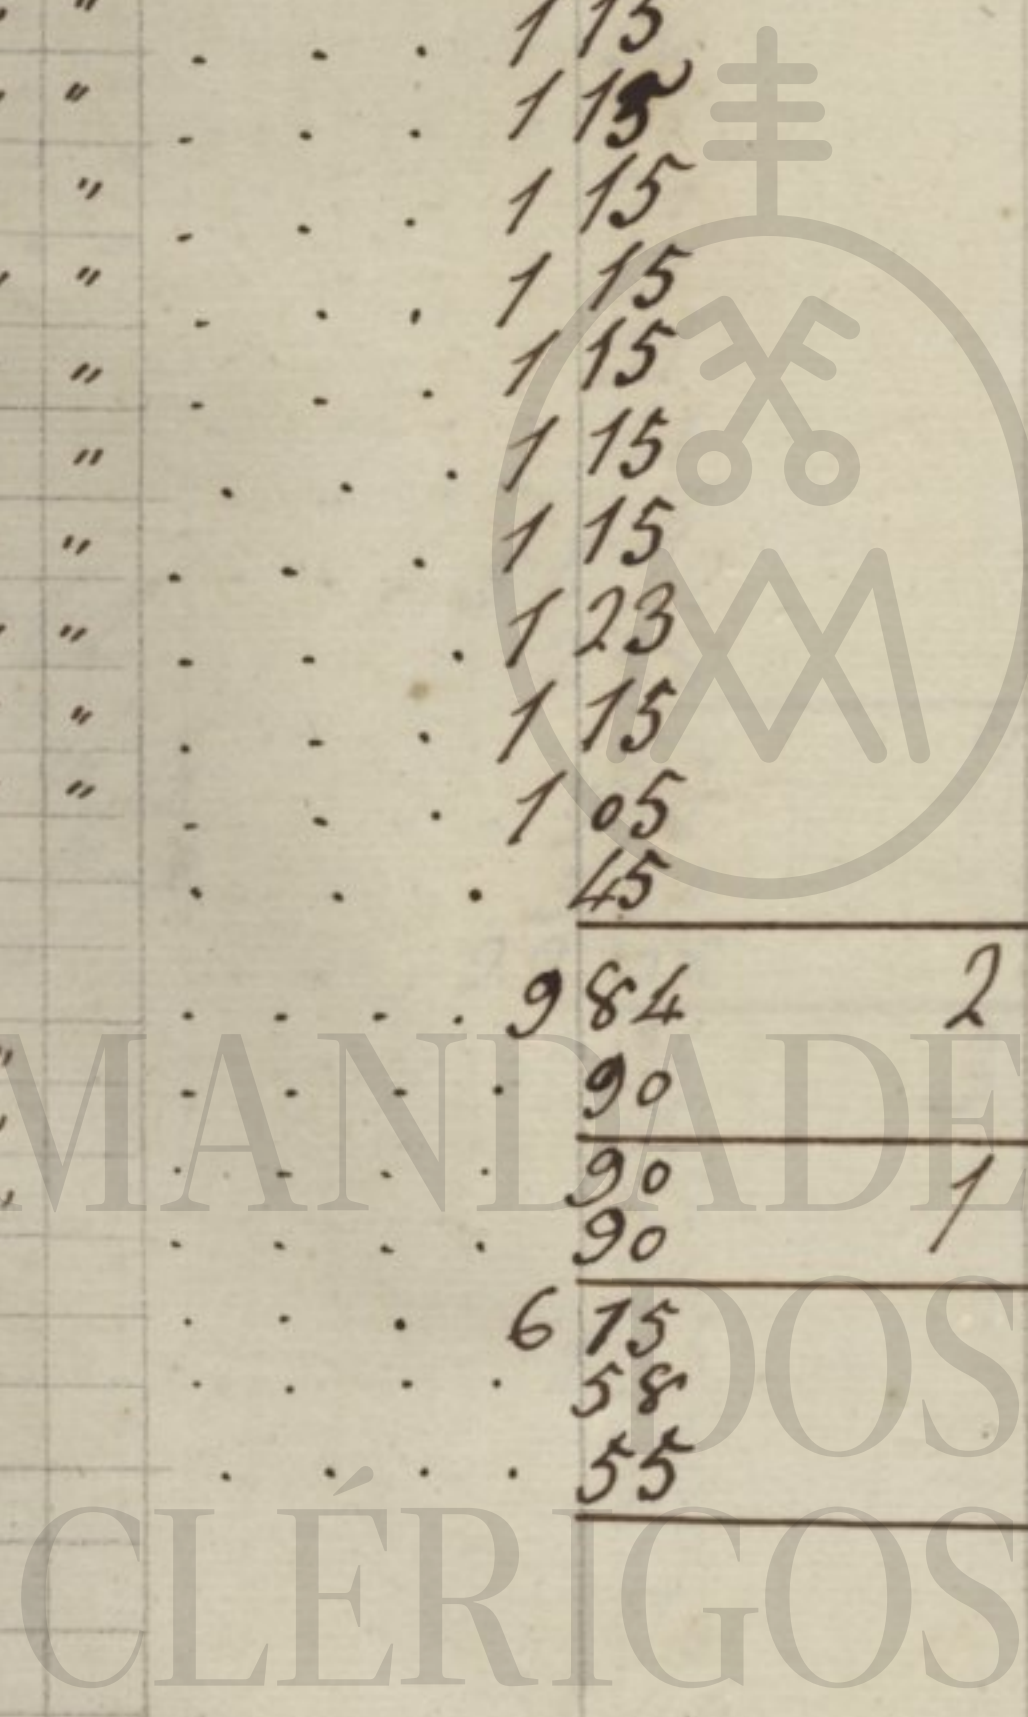 " . . . 1 15
" . . . 1 15
" . . . 1 15
" . . . 1 15
" . . . 1 15
" . . . 1 15
" . . . 1 15
" . . . 1 23
" . . . 1 15
" . . . 1 05
. . . 45
. . . . 9 84 2
" . . . . 90
" . . . . 90 1
. . . . 90
. . . 6 15
. . . . 58
. . . . 55
MANDADE
DOS
CLÉRIGOS